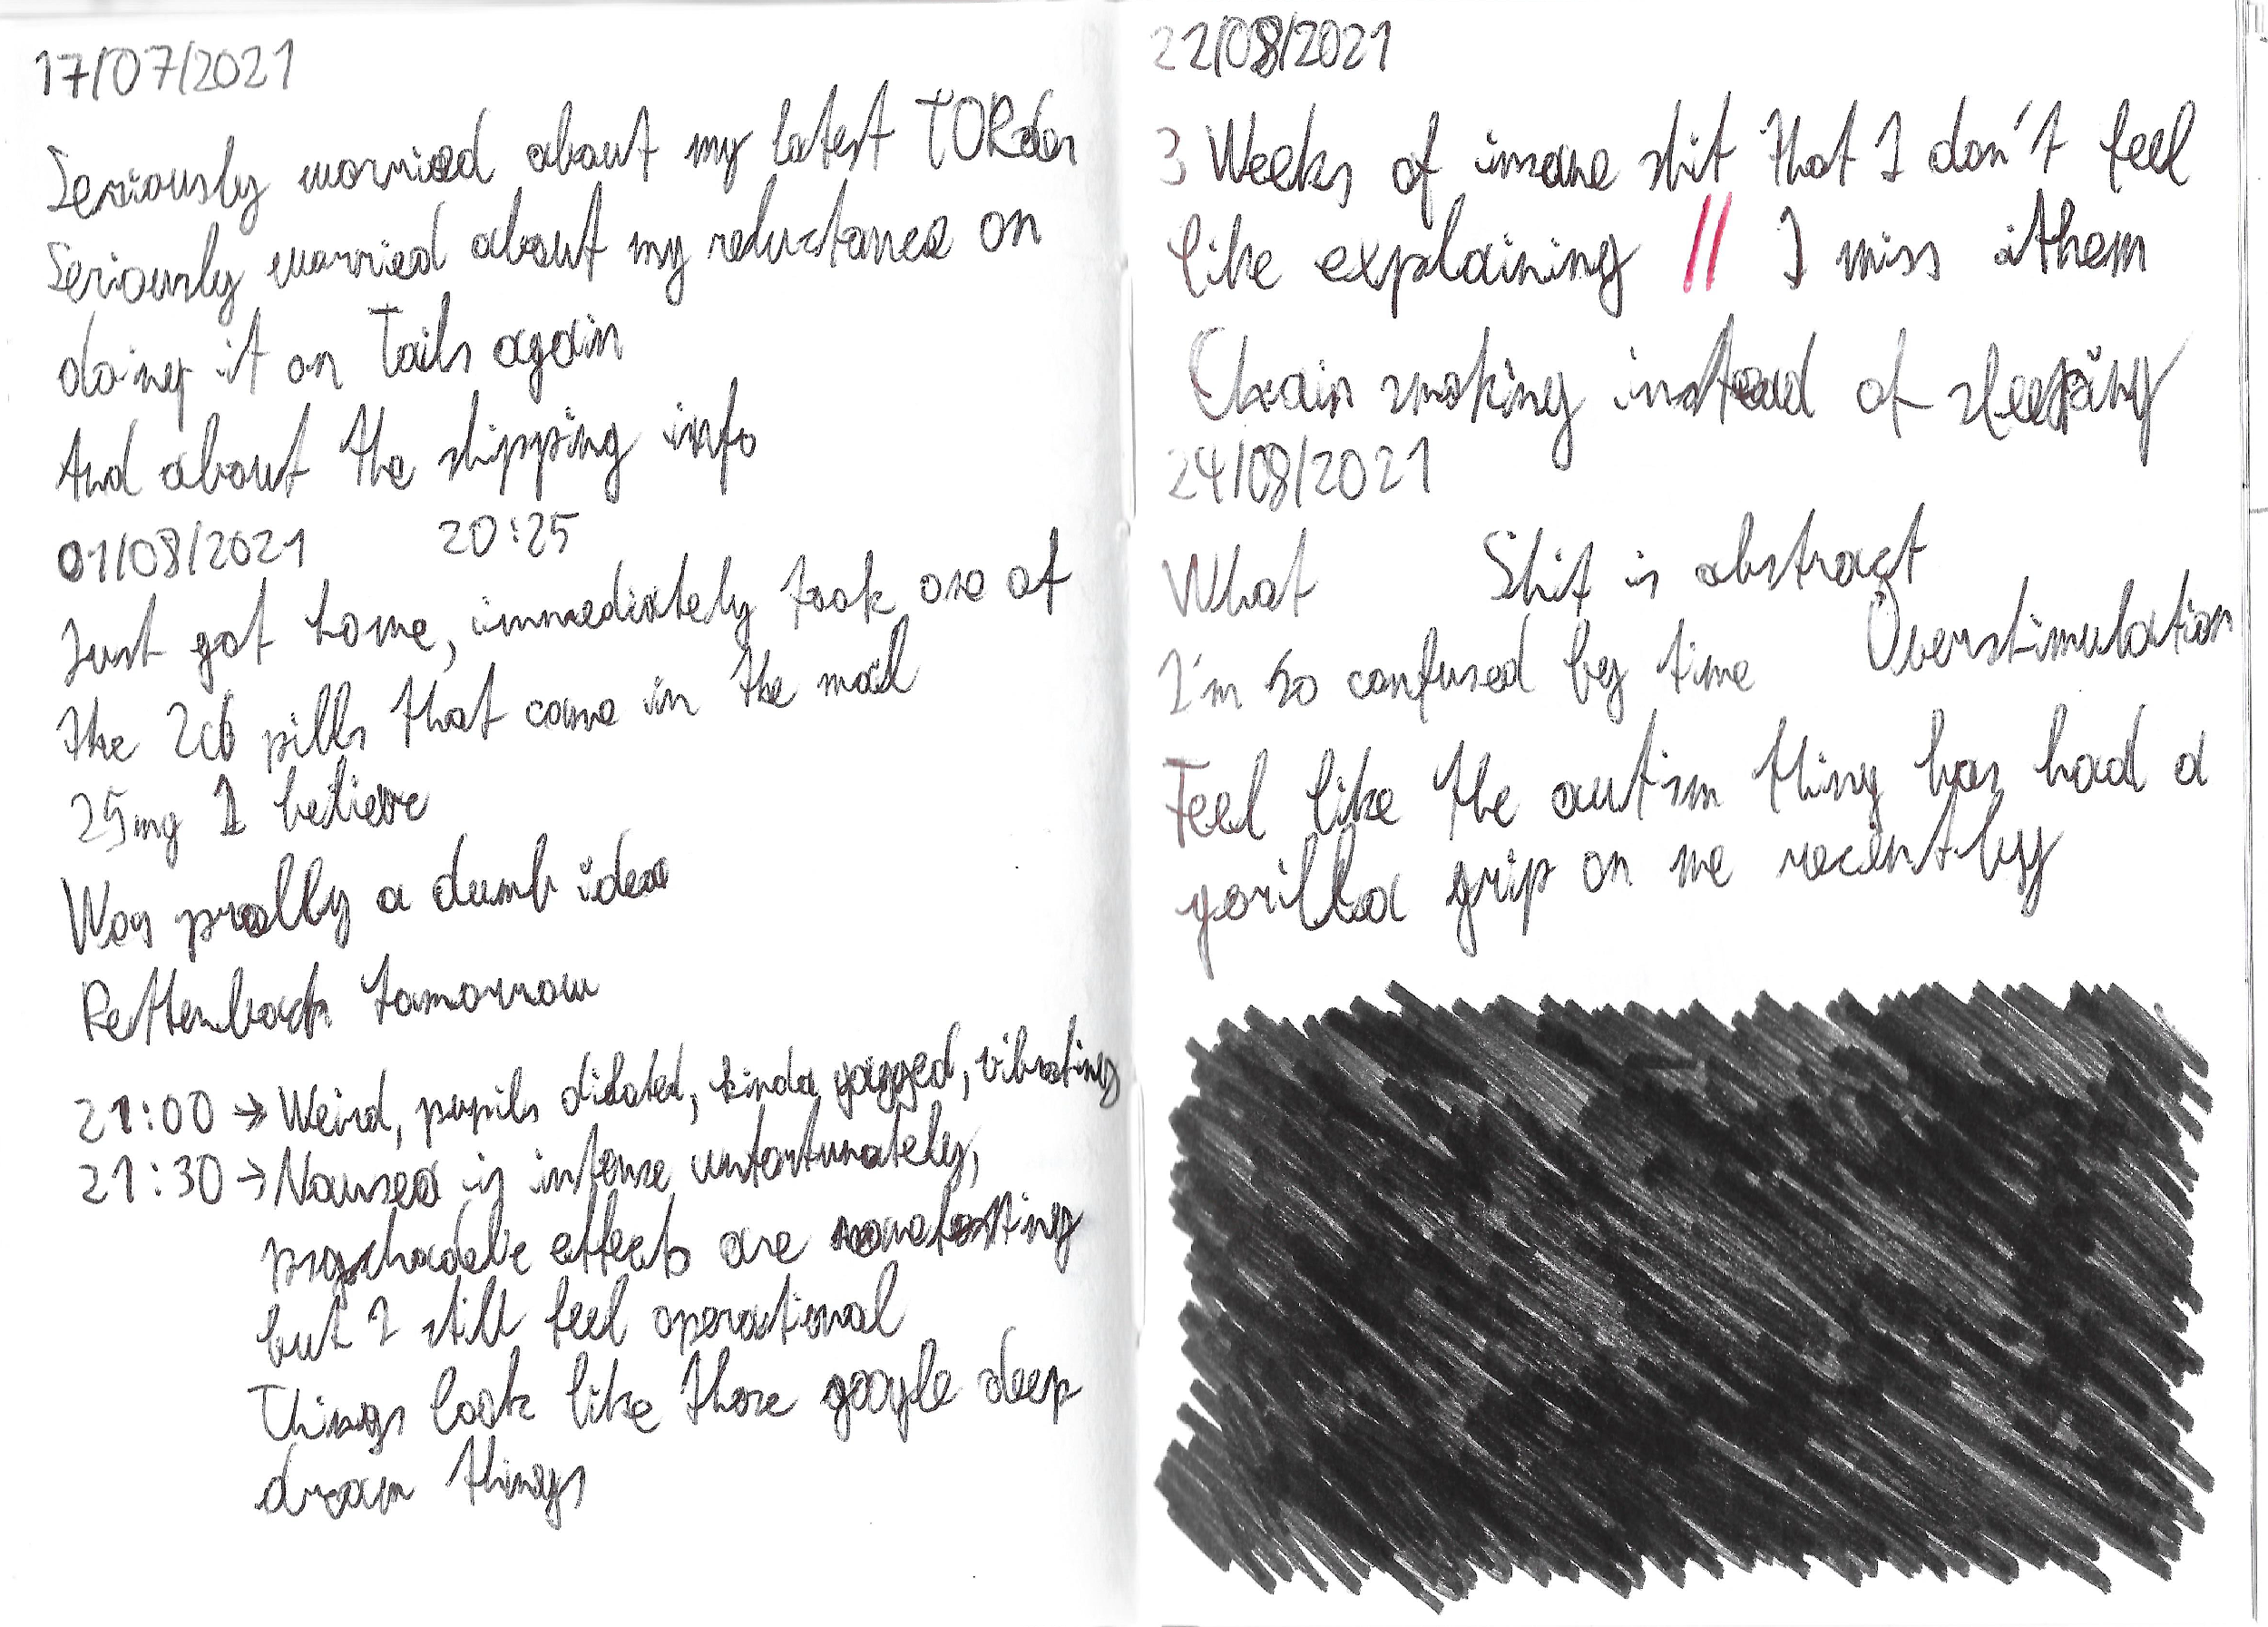 17/07/2021
Seriously worried about my latest TORder
Seriously worried about my reluctance on
doing it on Tails again
And about the shipping info
01/08/2021 20:25
Just got home, immediately took one of
the 2cb pills that came in the mail
25mg I believe
Was prolly a dumb idea
Rettenbach tomorrow
21:00 → Weird, pupils dilated, kinda jagged, vibrating
21:30 → Nausea is intense unfortunately,
psychadelic effects are
but I still feel operational
Things look like those google deep
dream things
22/08/2021
3 Weeks of insane shit that I don't feel
like explaining // I miss them
Chain smoking instead of sleeping
24/08/2021
What Shit is abstract
I'm so confused by time Overstimulation
Feel like the autism thing has had a
gorilla grip on me recently